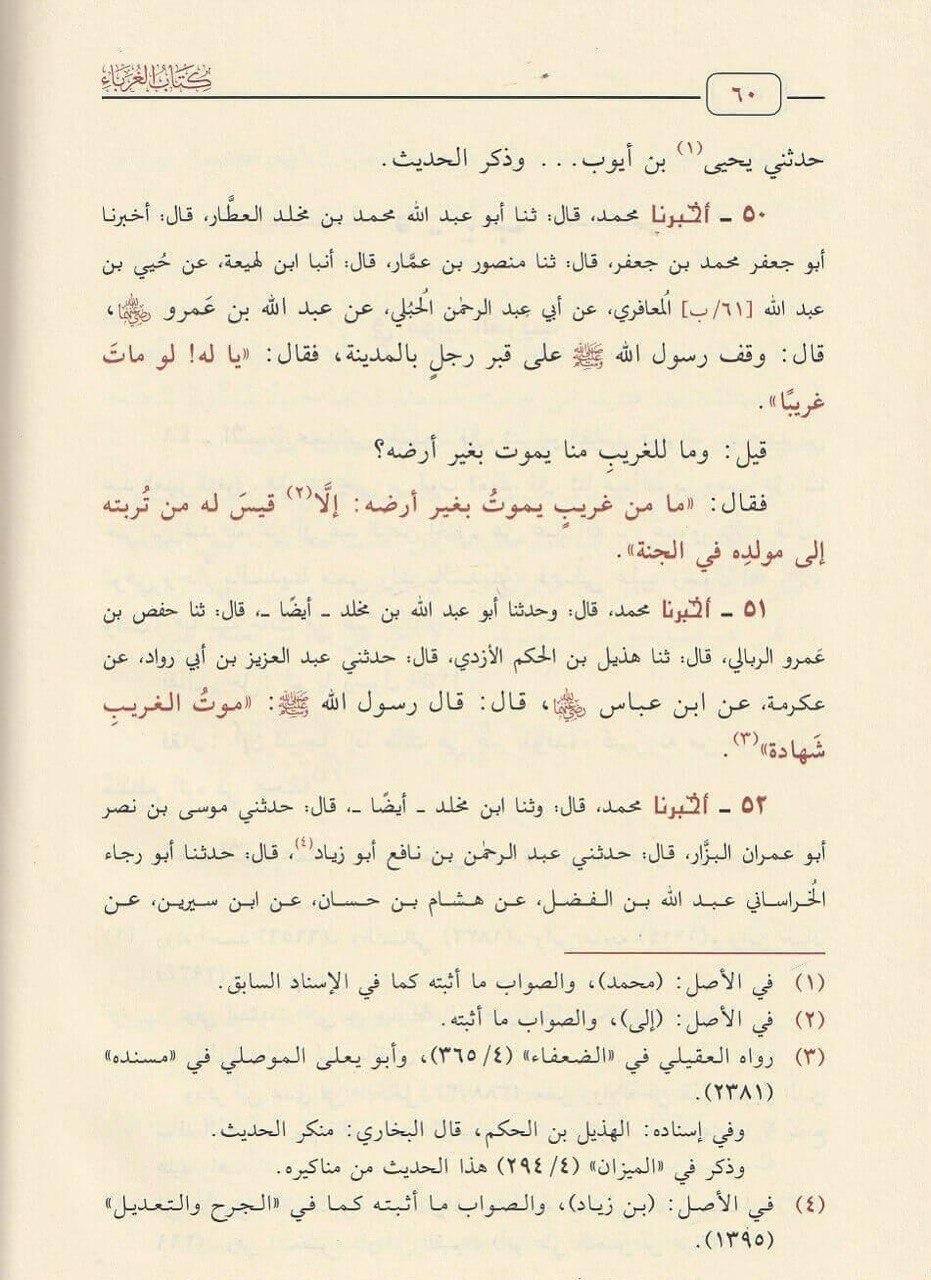 كتاب الغرباء
٦٠
حدثني يحيى(١) بن أيوب... وذكر الحديث.
٥٠ ـ أخبرنا محمد، قال: ثنا أبو عبد الله محمد بن مخلد العطَّار، قال: أخبرنا
أبو جعفر محمد بن جعفر، قال: ثنا منصور بن عمَّار، قال: أنبا ابن لهيعة، عن حُيي بن
عبد الله [٦١/ب] المُعافري، عن أبي عبد الرحمٰن الحُبُلي، عن عبد الله بن عَمرو رضي الله عنهما،
قال: وقف رسول الله ﷺ على قبر رجلٍ بالمدينة، فقال: «يا له! لو ماتَ
غريبًا».
قيل: وما للغريبِ منا يموت بغير أرضه؟
فقال: «ما من غريبٍ يموتُ بغير أرضه: إلَّا(٢) قيسَ له من تُربته
إلى مولدِه في الجنة».
٥١ ـ أخبرنا محمد، قال: وحدثنا أبو عبد الله بن مخلد ـ أيضًا ـ، قال: ثنا حفص بن
عَمرو الربالي، قال: ثنا هذيل بن الحكم الأزدي، قال: حدثني عبد العزيز بن أبي رواد، عن
عكرمة، عن ابن عباس رضي الله عنهما، قال: قال رسول الله ﷺ: «موتُ الغريبِ
شَهادة»(٣).
٥٢ ـ أخبرنا محمد، قال: وثنا ابن مخلد ـ أيضًا ـ، قال: حدثني موسى بن نصر
أبو عمران البزَّار، قال: حدثني عبد الرحمٰن بن نافع أبو زياد(٤)، قال: حدثنا أبو رجاء
الخُراساني عبد الله بن الفضل، عن هشام بن حسان، عن ابن سيرين، عن
(١) في الأصل: (محمد)، والصواب ما أثبته كما في الإسناد السابق.
(٢) في الأصل: (إلى)، والصواب ما أثبته.
(٣) رواه العقيلي في «الضعفاء» (٤/ ٣٦٥)، وأبو يعلى الموصلي في «مسنده»
(٢٣٨١).
وفي إسناده: الهذيل بن الحكم، قال البخاري: منكر الحديث.
وذكر في «الميزان» (٤/ ٢٩٤) هذا الحديث من مناكيره.
(٤) في الأصل: (بن زياد)، والصواب ما أثبته كما في «الجرح والتعديل»
(١٣٩٥).